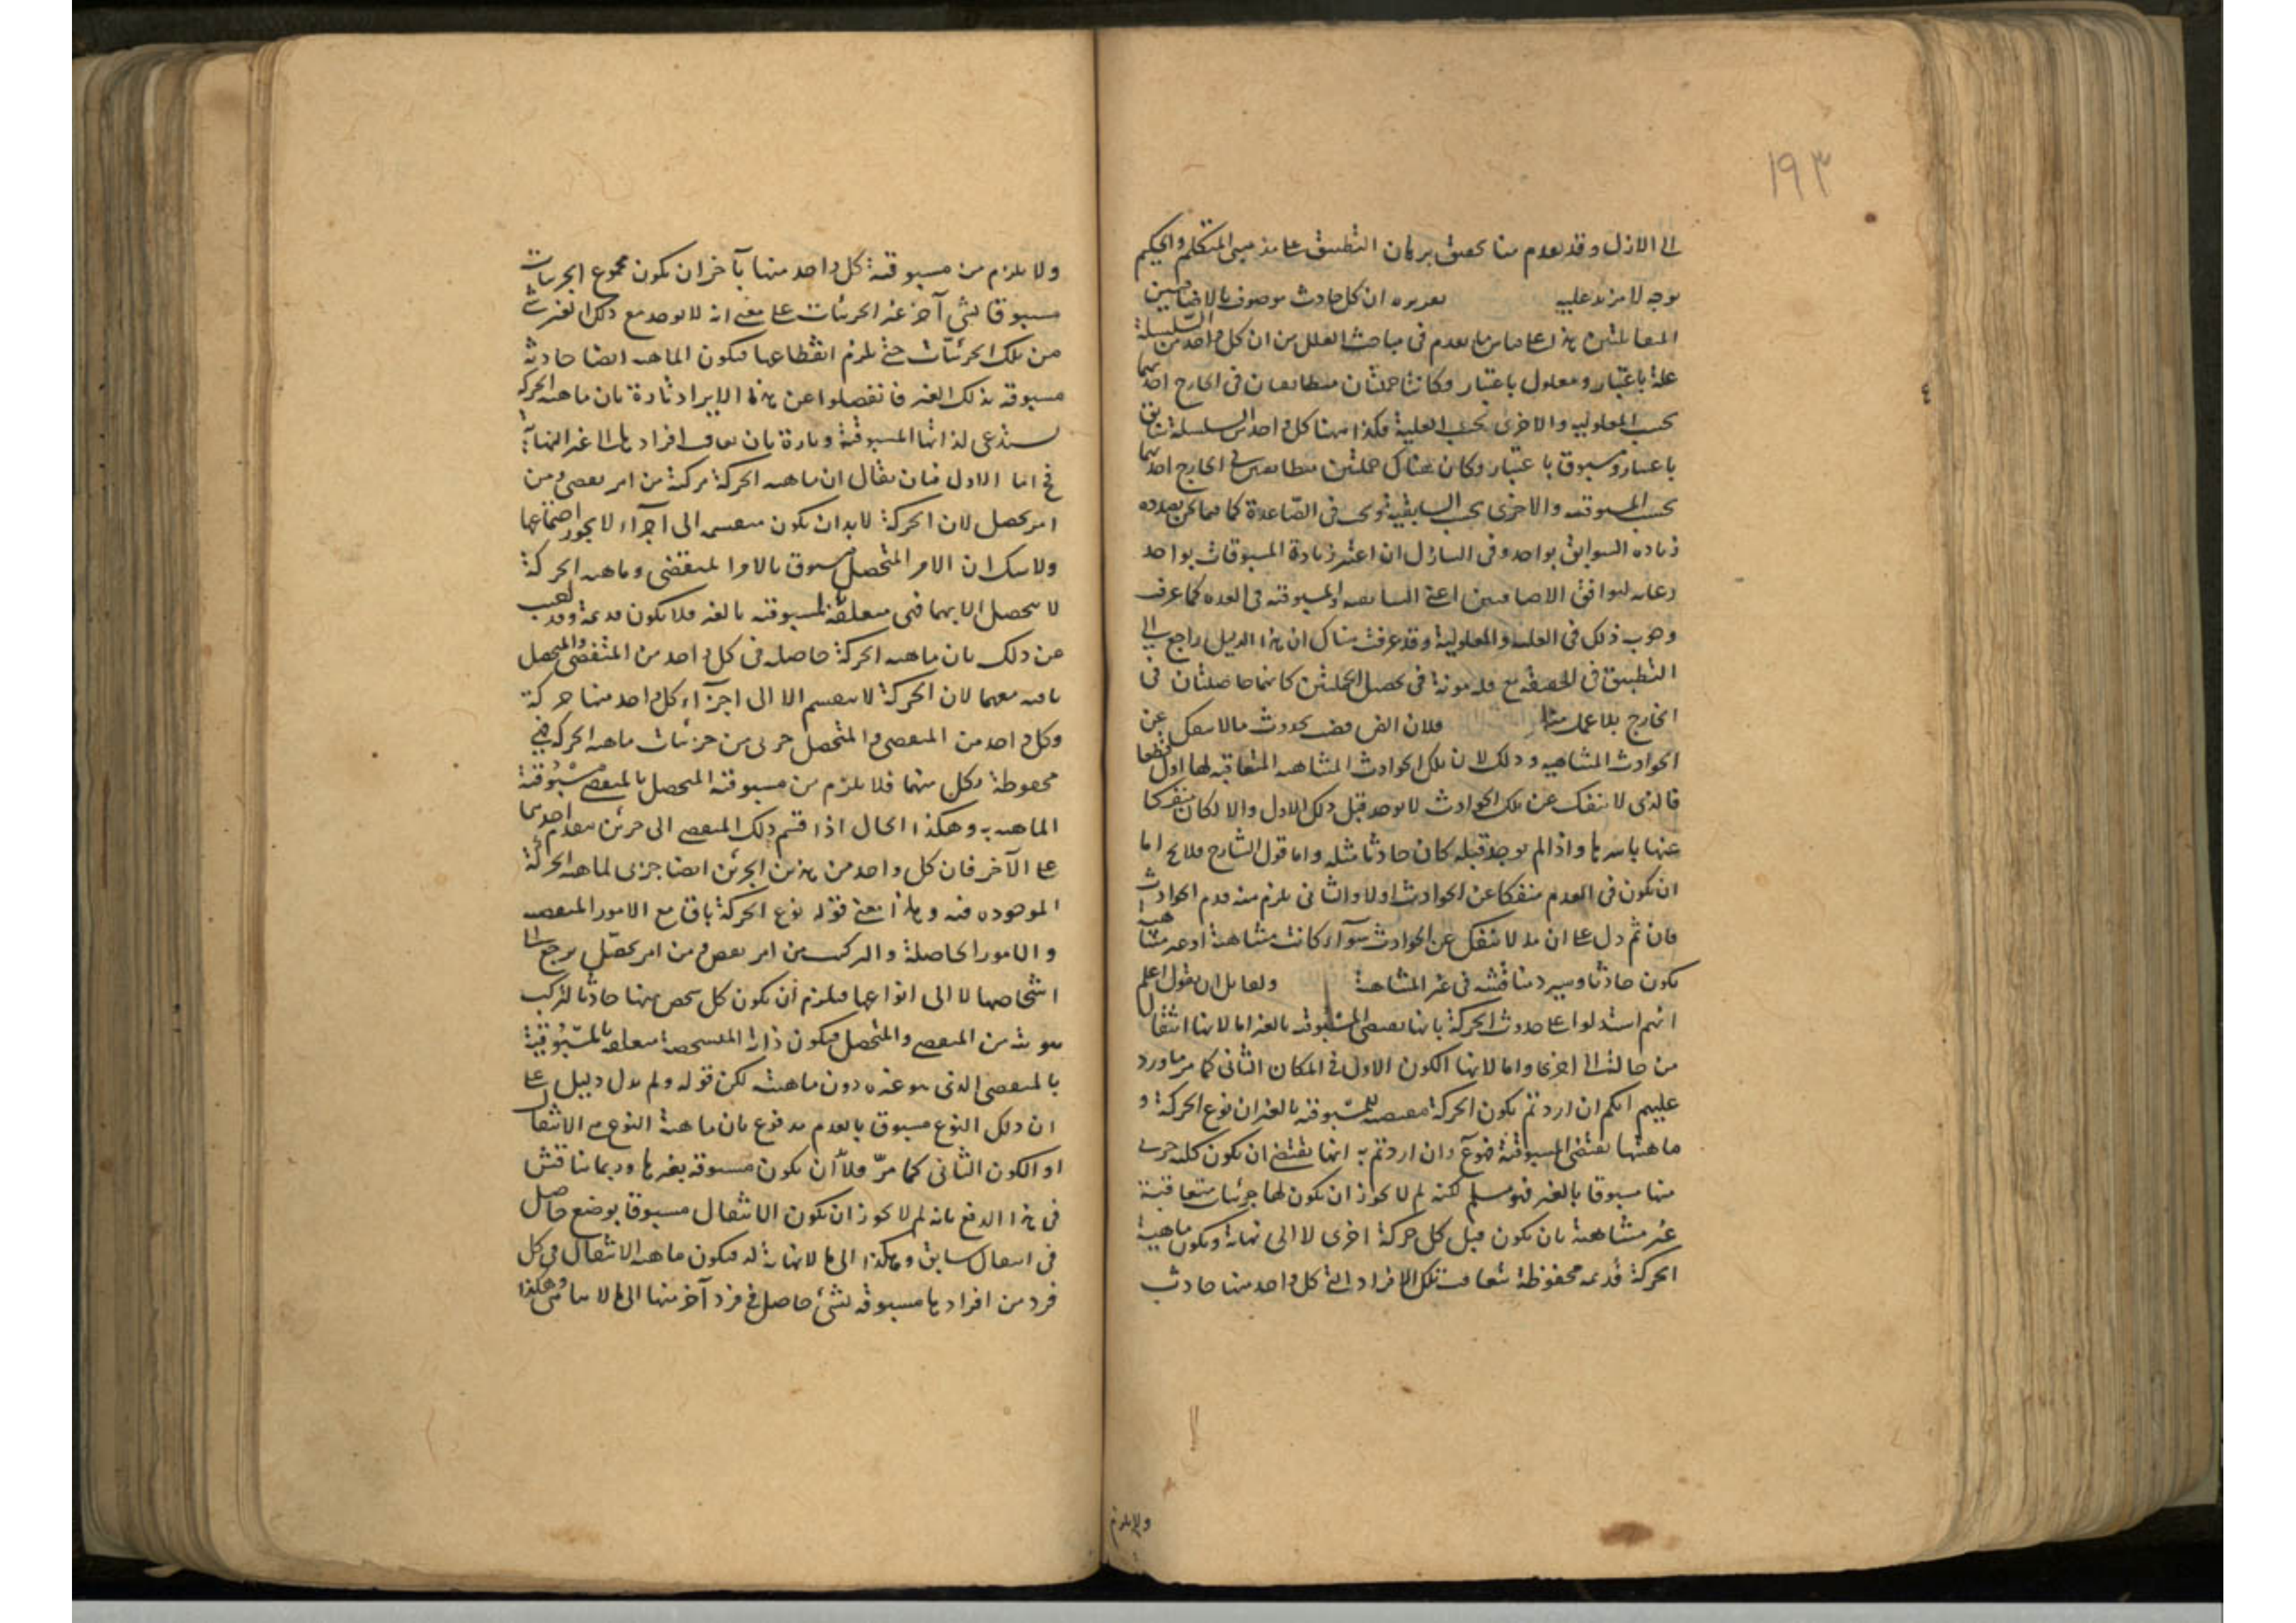 ١٩٣
الى الازل وقد تقدم منا تحقيق برهان التطبيق على مذهبى المتكلم والحكيم
بوجه لا مزيد عليه تقريره ان كل حادث موصوف بالاضافتين
المتقابلتين هذا على قياس ما تقدم فى مباحث العلل من ان كل واحد من السلسلة
علة باعتبار ومعلول باعتبار وكانتا جملتان متطابقان فى الخارج احديهما
بحسب المعلولية والاخرى بحسب العلية فكذا ههنا كل واحد من السلسلة سابق
باعتبار ومسبوق باعتبار وكان هناك جملتين متطابقتين فى الخارج احديهما
بحسب المسبوقية والاخرى بحسب السابقية ويجب فى الصاعدة كما فيما نحن بصدده
زيادة السوابق بواحد وفى النازل ان اعتبر زيادة المسبوقات بواحد
رعاية لتوافق الاضافتين اعنى السابقية والمسبوقية فى العدد كما عرفت
وجوب ذلك فى العلية والمعلولية وقد عرفت هناك ان هذا الدليل راجع الى
التطبيق فى الحقيقة مع قلة مونة فى تحصيل الجملتين كانهما حاصلتان فى
الخارج بلا عمل منا فلان الفرض حدوث ما لا ينفك عن
الحوادث المتناهية وذلك لان تلك الحوادث المتناهية المتعاقبة لها اول قطعا
فالذى لا ينفك عن تلك الحوادث لا يوجد قبل ذلك الاول والا لكان منفكا
عنها باسرها واذا لم يوجد قبله كان حادثا مثله واما قول الشارح فلا يخ اما
ان يكون فى القدم منفكا عن الحوادث اولا والثانى يلزم منه قدم الحوادث
فان ثم دل على ان ما لا ينفك عن الحوادث سواء كانت متناهية او غير متناهية
يكون حادثا وسيرد مناقشة فى غير المتناهية ولقائل ان يقول اعلم
انهم استدلوا على حدوث الحركة بانها تقتضى المسبوقية بالغير اما لانها انتقال
من حالة الى اخرى واما لانها الكون الاول فى المكان الثانى كما مر ما ورد
عليهم انكم ان اردتم بكون الحركة مقتضية للمسبوقية بالغير ان نوع الحركة و
ماهيتها تقتضى المسبوقية فممنوع وان اردتم به انها تقتضى ان يكون كل جزئى
منها مسبوقا بالغير فهو مسلم لكنه لم لا يجوز ان يكون لها جزئيات متعاقبة
غير متناهية بان يكون قبل كل حركة اخرى لا الى نهاية ويكون ماهية
الحركة قديمة محفوظة بتعاقب تلك الافراد التى كل واحد منها حادث
ولا يلزم
ولا يلزم من مسبوقية كل واحد منها بآخر ان يكون مجموع الجزئيات
مسبوقا بشئ آخر غير الجزئيات على معنى انه لا يوجد مع ذلك الغير شئ
من تلك الجزئيات حتى يلزم انقطاعها فيكون الماهية ايضا حادثة
مسبوقة بذلك الغير فانفصلوا عن هذا الايراد تارة بان ماهية الحركة
تستدعى لذاتها المسبوقية وتارة بان تعاقب افرادها الى غير النهاية
اما الاول فبان يقال ان ماهية الحركة مركبة من امر تقضى ومن
امر تحصل لان الحركة لا بد ان يكون منقسمة الى اجزاء لا يجوز اجتماعها
ولا شك ان الامر المتحصل مسبوق بالامر المنقضى وماهية الحركة
لا تحصل الا بهما فهى متعلقة المسبوقية بالغير فلا يكون قديمة وقد
عن ذلك بان ماهية الحركة حاصلة فى كل واحد من المنقضى والمتحصل
باقية معهما لان الحركة لا ينقسم الا الى اجزاء كل واحد منها حركة
وكل واحد من المنقضى والمتحصل جزئى من جزئيات ماهية الحركة فهى
محفوظة بكل منهما فلا يلزم من مسبوقية المتحصل بالمنقضى مسبوقية
الماهية به وهكذا الحال اذا قسم ذلك المنقضى الى جزئين تقدم احديهما
على الآخر فان كل واحد من هذين الجزئين ايضا جزئى لماهية الحركة
الموجودة فيه وهذا معنى قوله نوع الحركة باق مع الامور المنقضية
والامور الحاصلة والتركيب من امر تقضى ومن امر تحصل يرجع الى
اشخاصها لا الى انواعها فيلزم ان يكون كل شخص منها حادثا لتركب
هويته من المنقضى والمتحصل فيكون ذاته المتشخصة متعلقة بالمسبوقية
بالمنقضى الذى هو غيره دون ماهيته لكن قوله ولم يدل دليل على
ان ذلك النوع مسبوق بالعدم مدفوع بان ماهية النوع هى الانتقال
او الكون الثانى كما مر فلا بد ان يكون مسبوقة بغيرها وربما يناقش
فى هذا الدفع بانه لم لا يجوز ان يكون الانتقال مسبوقا بوضع حاصل
فى انتقال سابق وهكذا الى ما لا نهاية له فيكون ماهية الانتقال فى كل
فرد من افرادها مسبوقة بشئ حاصل فى فرد آخر منها الى ما لا يتناهى وهكذا